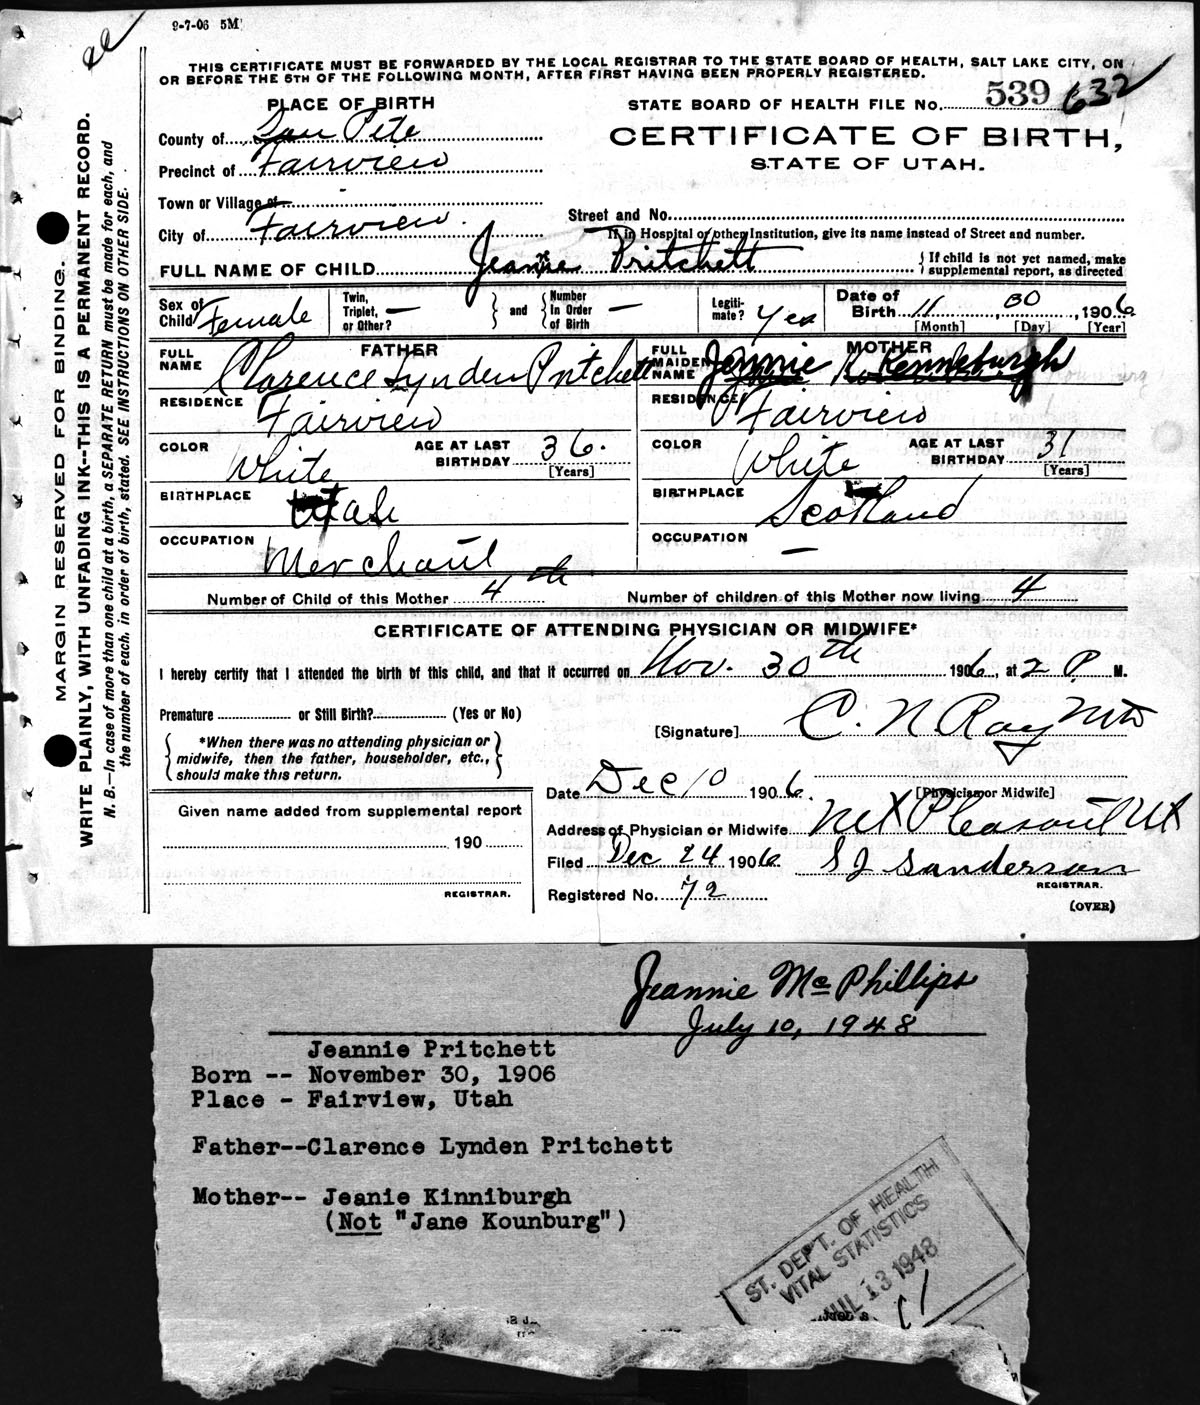 9-7-06 5M
THIS CERTIFICATE MUST BE FORWARDED BY THE LOCAL REGISTRAR TO THE STATE BOARD OF HEALTH, SALT LAKE CITY, ON
OR BEFORE THE 5TH OF THE FOLLOWING MONTH, AFTER FIRST HAVING BEEN PROPERLY REGISTERED.
PLACE OF BIRTH
STATE BOARD OF HEALTH FILE No. 539 632
County of San Pete
CERTIFICATE OF BIRTH,
STATE OF UTAH.
Precinct of Fairview
Town or Village of
Street and No.
City of Fairview.
If in Hospital or other Institution, give its name instead of Street and number.
FULL NAME OF CHILD Jeannie Pritchett
{If child is not yet named, make
supplemental report, as directed
Sex of Child Female
Twin, Triplet, or Other? —
} and {
Number In Order of Birth —
Legitimate? Yes
Date of Birth 11, 30, 1906
[Month] [Day] [Year]
FATHER
FULL NAME Clarence Lynden Pritchett
MOTHER
FULL MAIDEN NAME Jennie K. Kenneburgh
RESIDENCE Fairview
RESIDENCE Fairview
COLOR White
AGE AT LAST BIRTHDAY 36. [Years]
COLOR White
AGE AT LAST BIRTHDAY 31 [Years]
BIRTHPLACE Utah
BIRTHPLACE Scotland
OCCUPATION Merchant
OCCUPATION —
Number of Child of this Mother 4th
Number of children of this Mother now living 4
CERTIFICATE OF ATTENDING PHYSICIAN OR MIDWIFE*
I hereby certify that I attended the birth of this child, and that it occurred on Nov. 30th 1906, at 2 P. M.
Premature or Still Birth? (Yes or No)
[Signature] C. N. Ray MD
{*When there was no attending physician or
midwife, then the father, householder, etc.,
should make this return.}
Date Dec 10 1906.
[Physician or Midwife]
Given name added from supplemental report
190
REGISTRAR.
Address of Physician or Midwife Mt Pleasant Ut
Filed Dec 24 1906 S J Sanderson
REGISTRAR.
Registered No. 72
(OVER)
MARGIN RESERVED FOR BINDING.
WRITE PLAINLY, WITH UNFADING INK--THIS IS A PERMANENT RECORD.
N. B.—In case of more than one child at a birth, a SEPARATE RETURN must be made for each, and
the number of each, in order of birth, stated. SEE INSTRUCTIONS ON OTHER SIDE.
Jeannie McPhillips
July 10, 1948
Jeannie Pritchett
Born -- November 30, 1906
Place - Fairview, Utah
Father--Clarence Lynden Pritchett
Mother-- Jeanie Kinniburgh
(Not "Jane Kounburg")
ST. DEPT. OF HEALTH
VITAL STATISTICS
JUL 13 1948